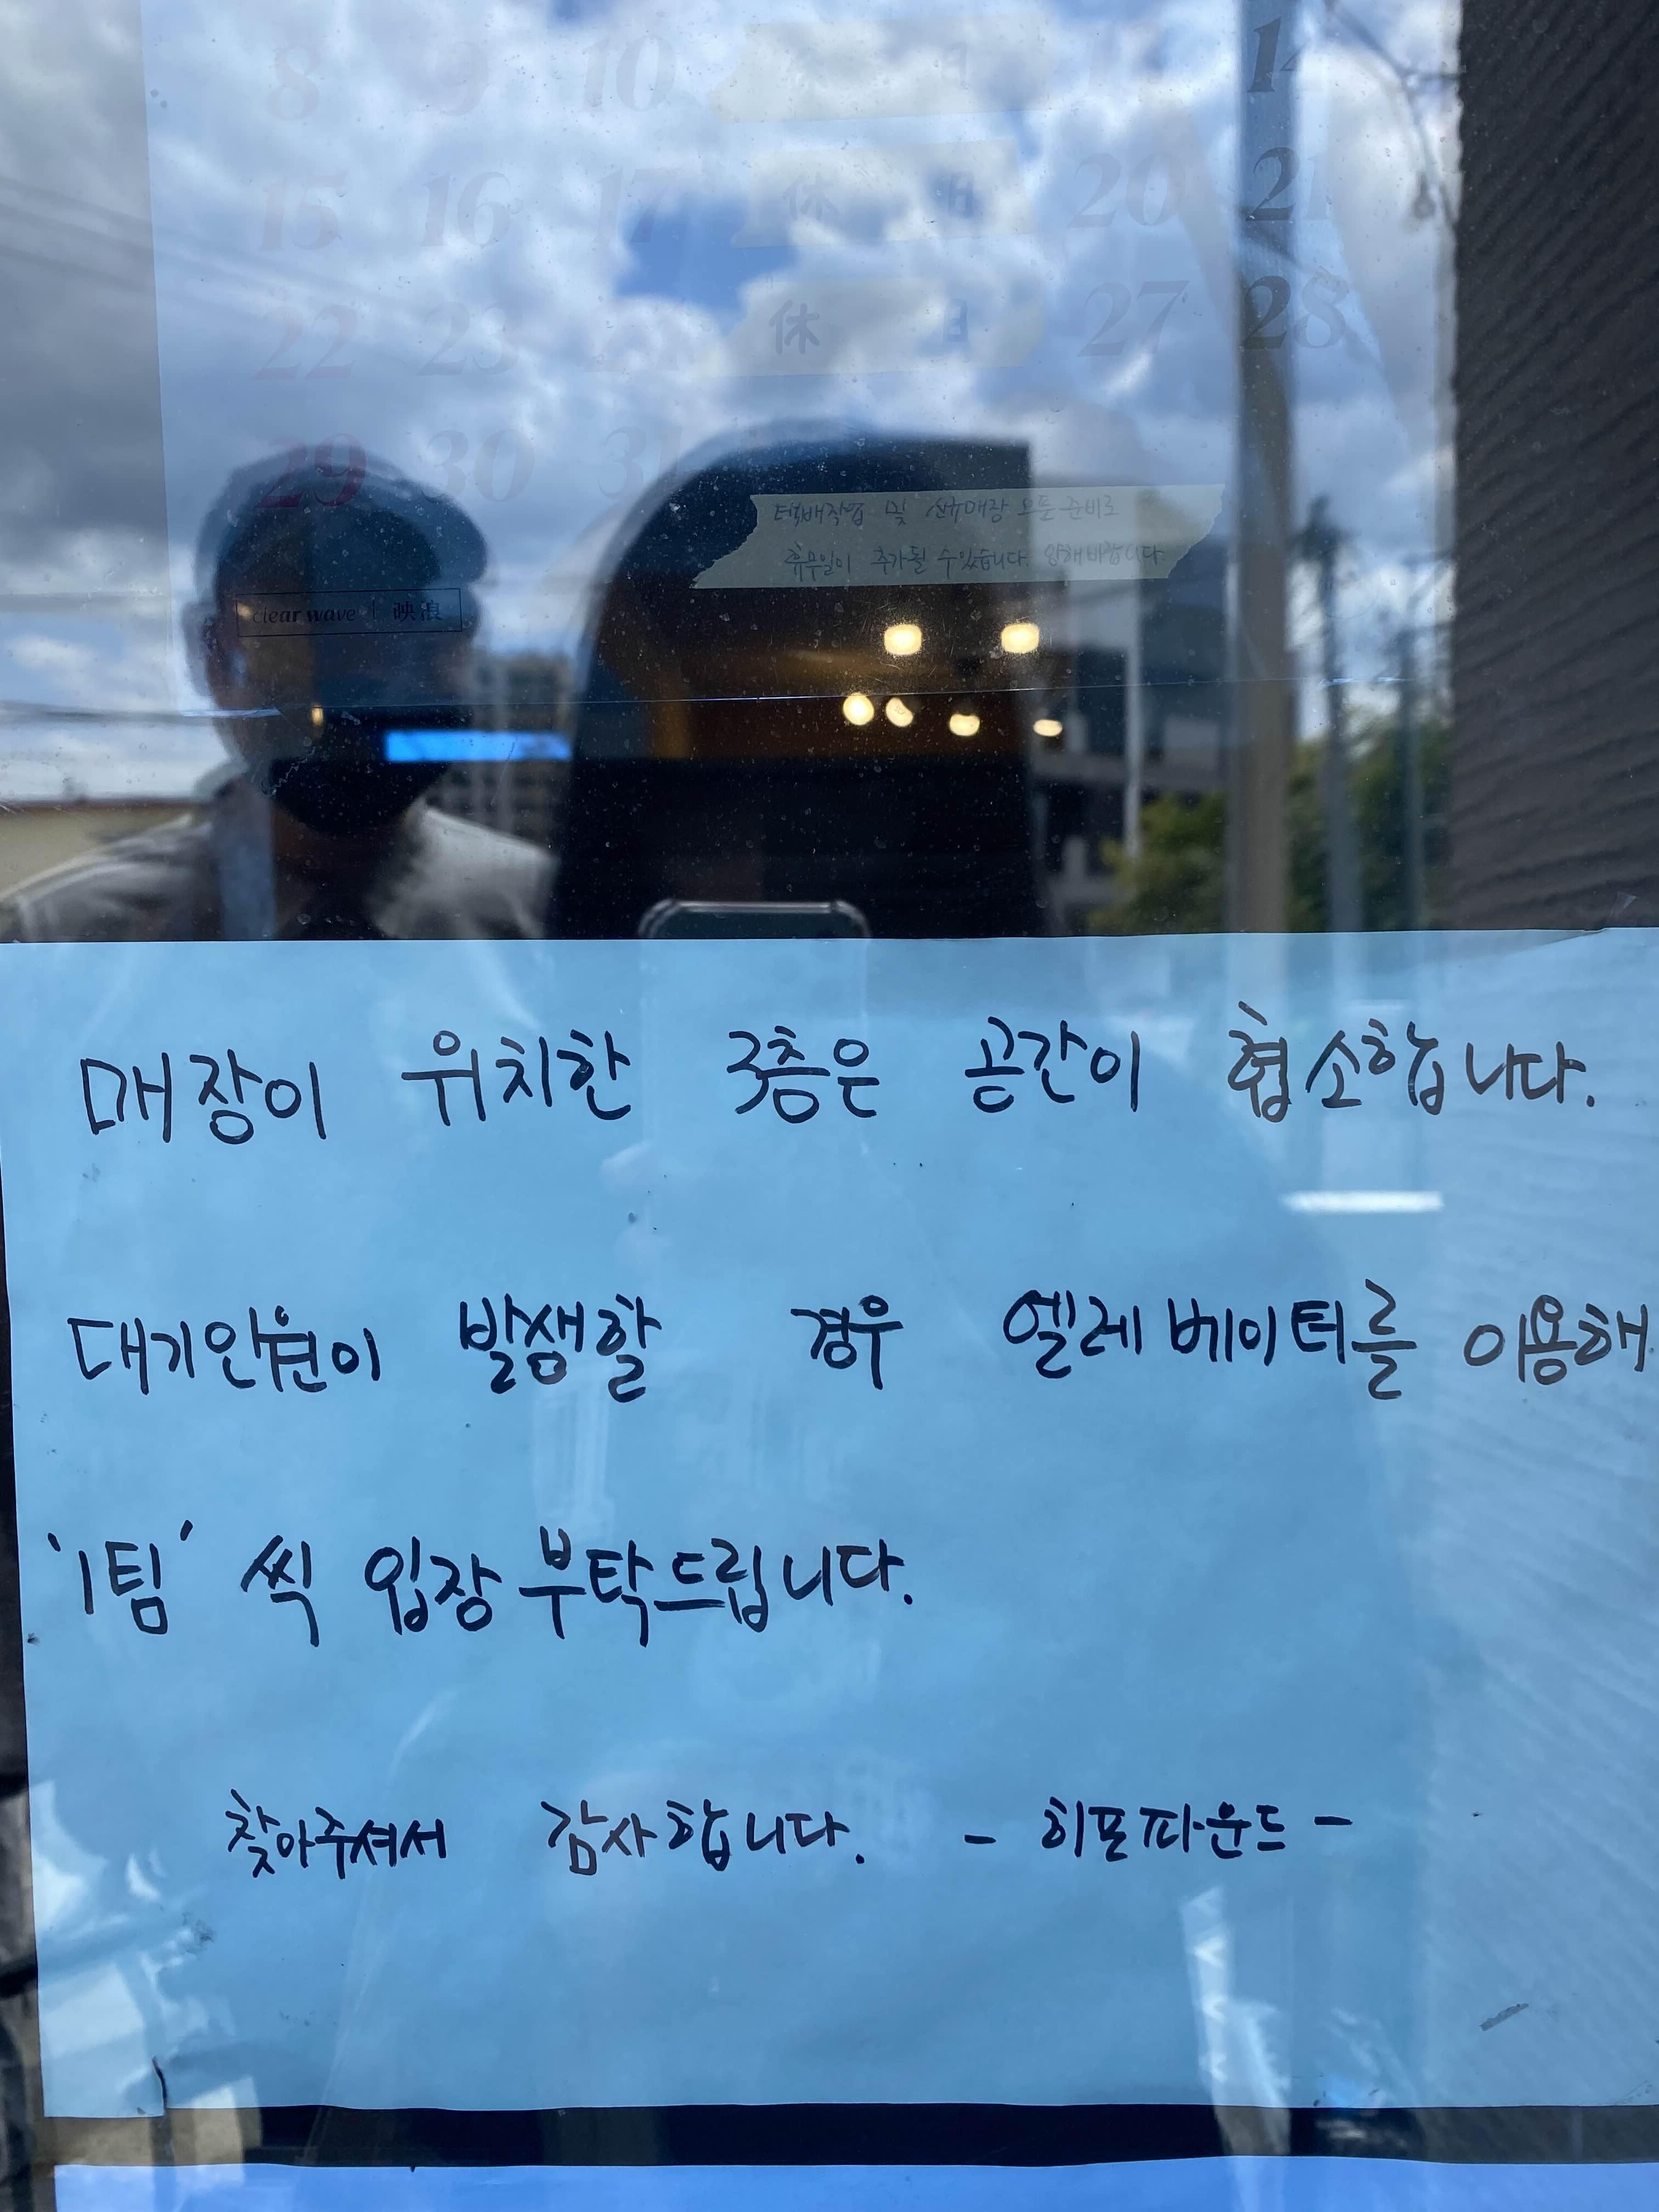 8 9 10 休 日 14
15 16 17 休 日 20 21
22 23 24 休 日 27 28
29 30 31
택배작업 및 신규매장 오픈 준비로
휴무일이 추가될 수 있습니다. 양해바랍니다
clear wave | 映浪
매장이 위치한 3층은 공간이 협소합니다.
대기인원이 발생할 경우 엘레베이터를 이용해
'1팀' 씩 입장 부탁드립니다.
찾아주셔서 감사합니다. - 히포파운드 -